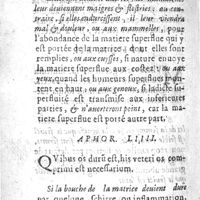 leur deuiennent maigres & flestries: au con-
traire, si elles endurcissent, il leur viendra
mal & douleur, ou aux mammelles, pour
l'abondance de la matiere superflue qui y
est portée de la matrice: dont elles sont
remplies, ou aux cuisses, si nature enuoye
la matiere superflue aux costez, ou aux
yeux, quand les humeurs superflues
tent en haut, ou aux genoux, si ladicte
perfluité est transmise aux inferieures
parties, & n'auorteront point, car la mat
superflue est porté autre part.
APHOR. LIIII.
QVibus os durũ est, his vteri os com
primi est necessarium.
Si la bouche de la matrice deuient dure
par quelque schirre ou inflammation,